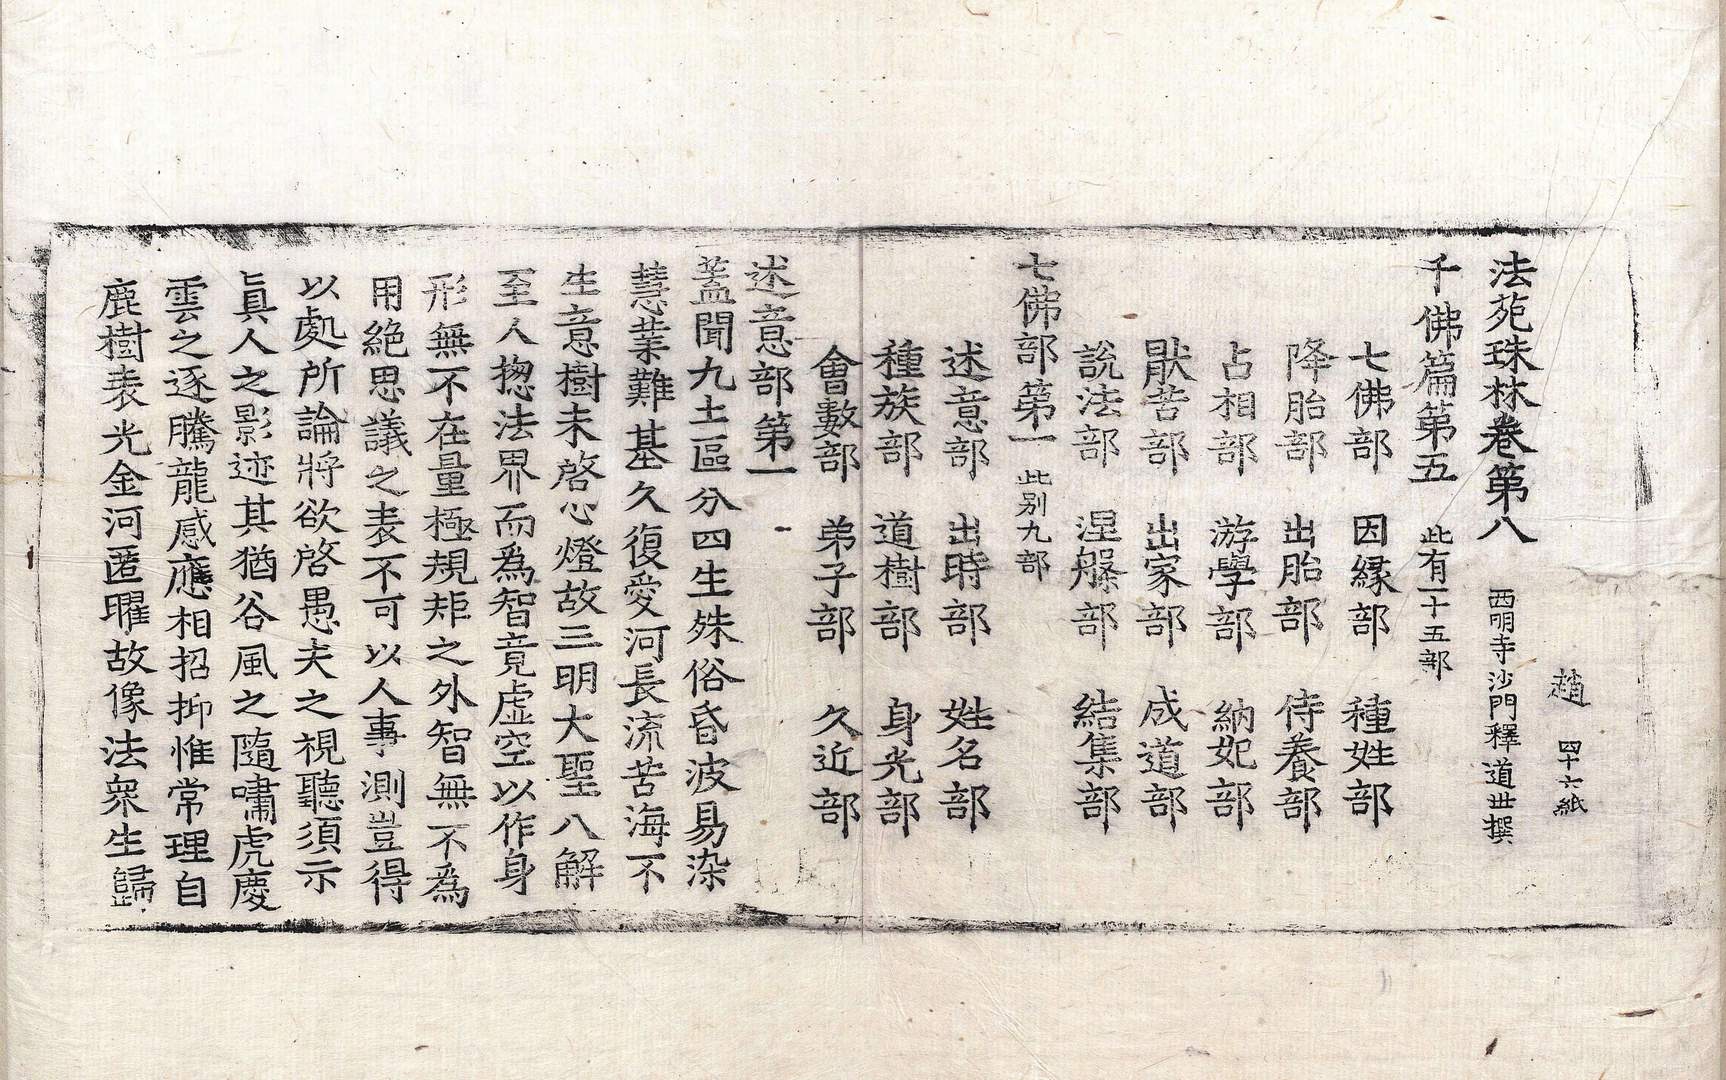 趙 四十六紙
法苑珠林卷第八 西明寺沙門釋道世撰
千佛篇第五 此有一十五部
七佛部 因緣部 種姓部
降胎部 出胎部 侍養部
占相部 游學部 納妃部
猒苦部 出家部 成道部
說法部 涅槃部 結集部
七佛部第一 此別九部
述意部 出時部 姓名部
種族部 道樹部 身光部
會數部 弟子部 久近部
述意部第一
蓋聞九土區分四生殊俗昏波易染
慧業難基久復愛河長流苦海不
生意樹未啓心燈故三明大聖八解
至人揔法界而爲智竟虛空以作身
形無不在量極規矩之外智無不爲
用絕思議之表不可以人事測豈得
以處所論將欲啓愚夫之視聽須示
眞人之影迹其猶谷風之隨嘯虎慶
雲之逐騰龍感應相招抑惟常理自
鹿樹表光金河匿曜故像法衆生歸